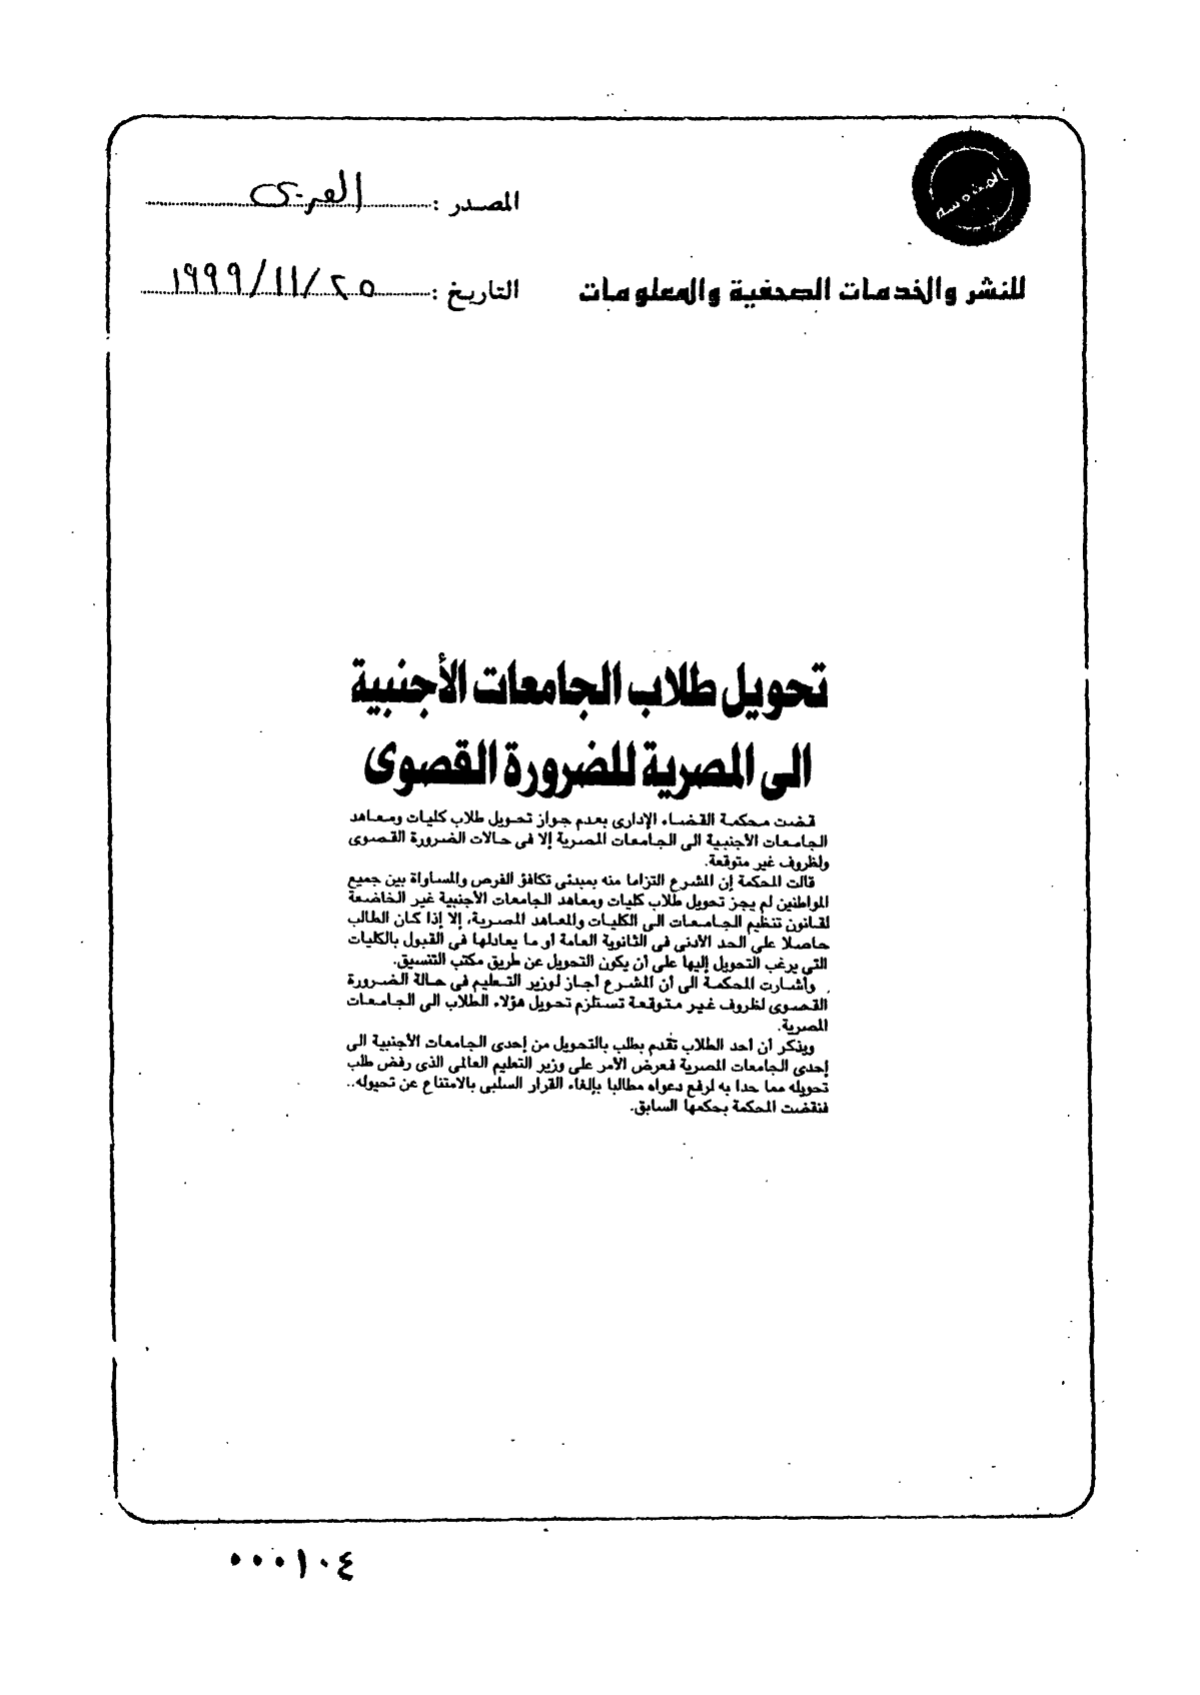 المحروسة
المصدر : العربى
للنشر والخدمات الصحفية والمعلومات
التاريخ : ٢٥/١١/١٩٩٩
تحويل طلاب الجامعات الأجنبية
الى المصرية للضرورة القصوى
قضت محكمة القضاء الإدارى بعدم جواز تحويل طلاب كليات ومعاهد
الجامعات الأجنبية الى الجامعات المصرية إلا فى حالات الضرورة القصوى
ولظروف غير متوقعة.
قالت المحكمة إن المشرع التزاما منه بمبدئى تكافؤ الفرص والمساواة بين جميع
المواطنين لم يجز تحويل طلاب كليات ومعاهد الجامعات الأجنبية غير الخاضعة
لقانون تنظيم الجامعات الى الكليات والمعاهد المصرية، إلا إذا كان الطالب
حاصلا على الحد الأدنى فى الثانوية العامة أو ما يعادلها فى القبول بالكليات
التى يرغب التحويل إليها على أن يكون التحويل عن طريق مكتب التنسيق.
وأشارت المحكمة الى أن المشرع أجاز لوزير التعليم فى حالة الضرورة
القصوى لظروف غير متوقعة تستلزم تحويل هؤلاء الطلاب الى الجامعات
المصرية.
ويذكر أن أحد الطلاب تقدم بطلب بالتحويل من إحدى الجامعات الأجنبية الى
إحدى الجامعات المصرية فعرض الأمر على وزير التعليم العالى الذى رفض طلب
تحويله مما حدا به لرفع دعواه مطالبا بإلغاء القرار السلبى بالامتناع عن تحيوله..
فنقضت المحكمة بحكمها السابق.
٠٠٠١٠٤